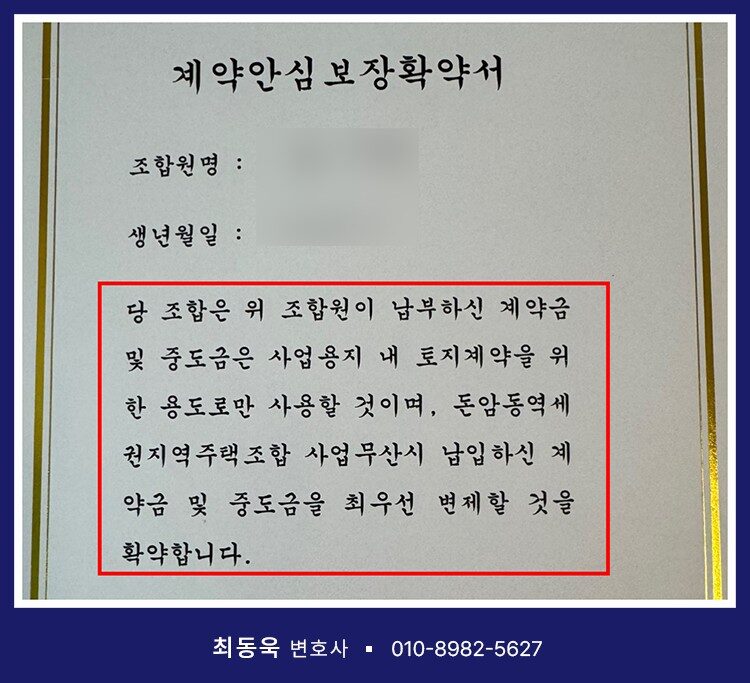 계약안심보장확약서
조합원명 :
생년월일 :
당 조합은 위 조합원이 납부하신 계약금
및 중도금은 사업용지 내 토지계약을 위
한 용도로만 사용할 것이며, 돈암동역세
권지역주택조합 사업무산시 납입하신 계
약금 및 중도금을 최우선 변제할 것을
확약합니다.
최동욱 변호사 ▪ 010-8982-5627